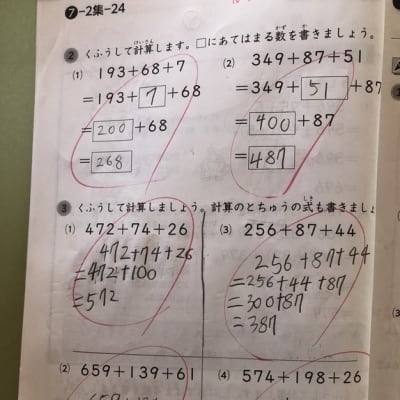 7-2集-24
2 くふうして計算します。□にあてはまる数を書きましょう。
(1) 193+68+7
=193+7+68
=200+68
=268
(2) 349+87+51
=349+51+87
=400+87
=487
3 くふうして計算しましょう。計算のとちゅうの式も書きましょ
(1) 472+74+26
472+74+26
=472+100
=572
(3) 256+87+44
256+87+44
=256+44+87
=300+87
=387
(2) 659+139+61
(4) 574+198+26